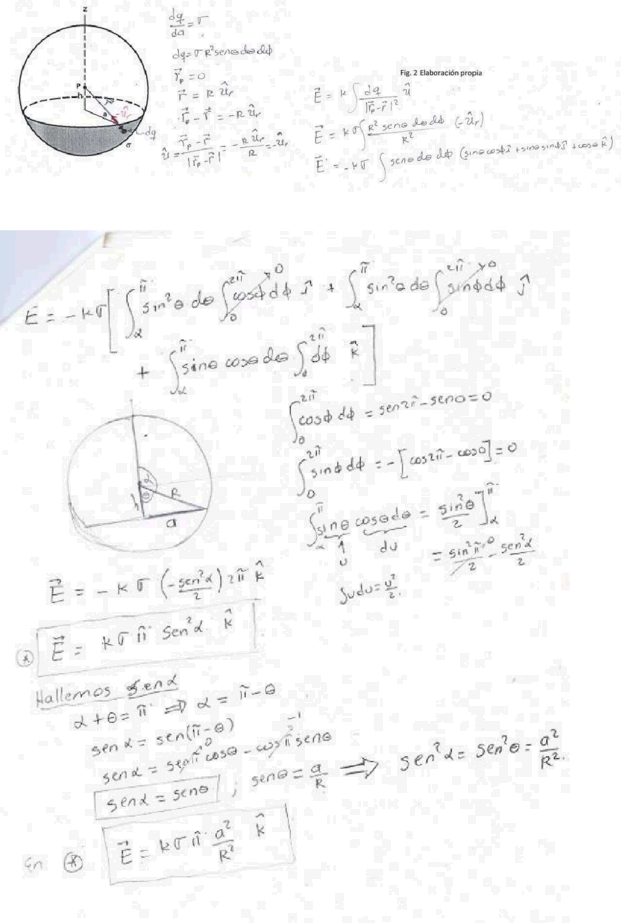 z
dq/da = σ
dq = σ R² senθ dθ dϕ
r⃗ₚ = 0
r⃗ = R ûᵣ
r⃗ₚ - r⃗ = -R ûᵣ
û = (r⃗ₚ - r⃗)/|r⃗ₚ - r⃗| = -R ûᵣ/R = -ûᵣ
P
h
R
a
dq
σ
Fig. 2 Elaboración propia
E⃗ = k ∫ dq/|r⃗ₚ - r⃗|² û
E⃗ = kσ ∫ R² senθ dθ dϕ/R² (-ûᵣ)
E⃗ = -kσ ∫ senθ dθ dϕ (sinθ cosϕ î + sinθ sinϕ ĵ + cosθ k̂)
E⃗ = -kσ [ ∫_α^π sin²θ dθ ∫_0^2π cosϕ dϕ 0 î + ∫_α^π sin²θ dθ ∫_0^2π sinϕ dϕ 0 ĵ
+ ∫_α^π sinθ cosθ dθ ∫_0^2π dϕ k̂ ]
∫_0^2π cosϕ dϕ = sen2π - sen0 = 0
∫_0^2π sinϕ dϕ = -[cos2π - cos0] = 0
α
θ
h
R
a
∫_α^π sinθ cosθ dθ = sin²θ/2 ]_α^π
u du
= sin²π/2 0 - sen²α/2
∫u du = u²/2.
E⃗ = -kσ (-sen²α/2) 2π k̂
(*) E⃗ = kσ π sen²α k̂
Hallemos senα
α + θ = π ⇒ α = π - θ
senα = sen(π - θ)
senα = senπ 0 cosθ - cosπ -1 senθ
senα = senθ ; senθ = a/R ⇒ sen²α = sen²θ = a²/R².
En (*) E⃗ = kσ π a²/R² k̂